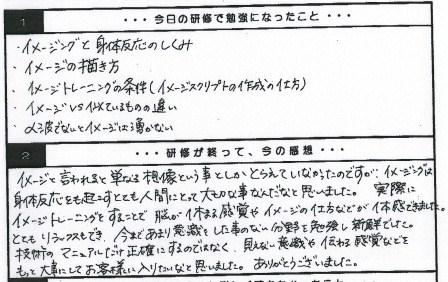 1 ・・・今日の研修で勉強になったこと・・・
・イメージングと身体反応のしくみ
・イメージの描き方
・イメージトレーニングの条件(イメージスクリプトの作成の仕方)
・イメージvs似ているものの違い
・α波でないとイメージは湧かない
2 ・・・研修が終って、今の感想・・・
イメージと言われると単なる想像という事としかとらえていなかったのですが、イメージングは
身体反応をも起こすとても人間にとって大切な事なんだなと思いました。実際に
イメージトレーニングをすることで脳が休まる感覚やイメージの仕方などが体感できました。
とてもリラックスもでき、今まであまり意識した事のない分野を勉強し新鮮でした。
技術のマニュアルだけ正確にするのではなく、見えない意識や伝わる感覚などを
もっと大事にしてお客様に入りたいなと思いました。ありがとうございました。